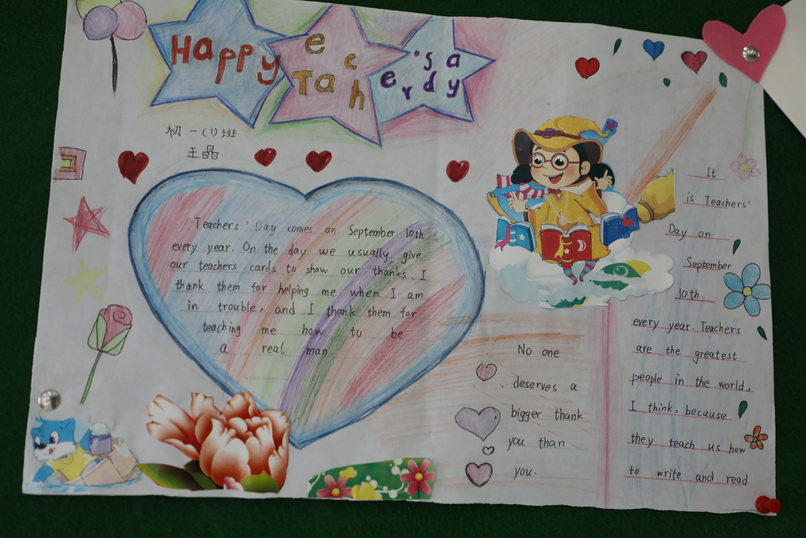 Happy
Teacher's day
初一(1)班
王晶
Teachers' Day comes on September 10th
every year. On the day we usually give
our teachers cards to show our thanks. I
thank them for helping me when I am
in trouble, and I thank them for
teaching me how to be
a real man.
No one
deserves a
bigger thank
you than
you.
It
is Teachers'
Day on
September
10th
every year. Teachers
are the greatest
people in the world,
I think, because
they teach us how
to write and read.